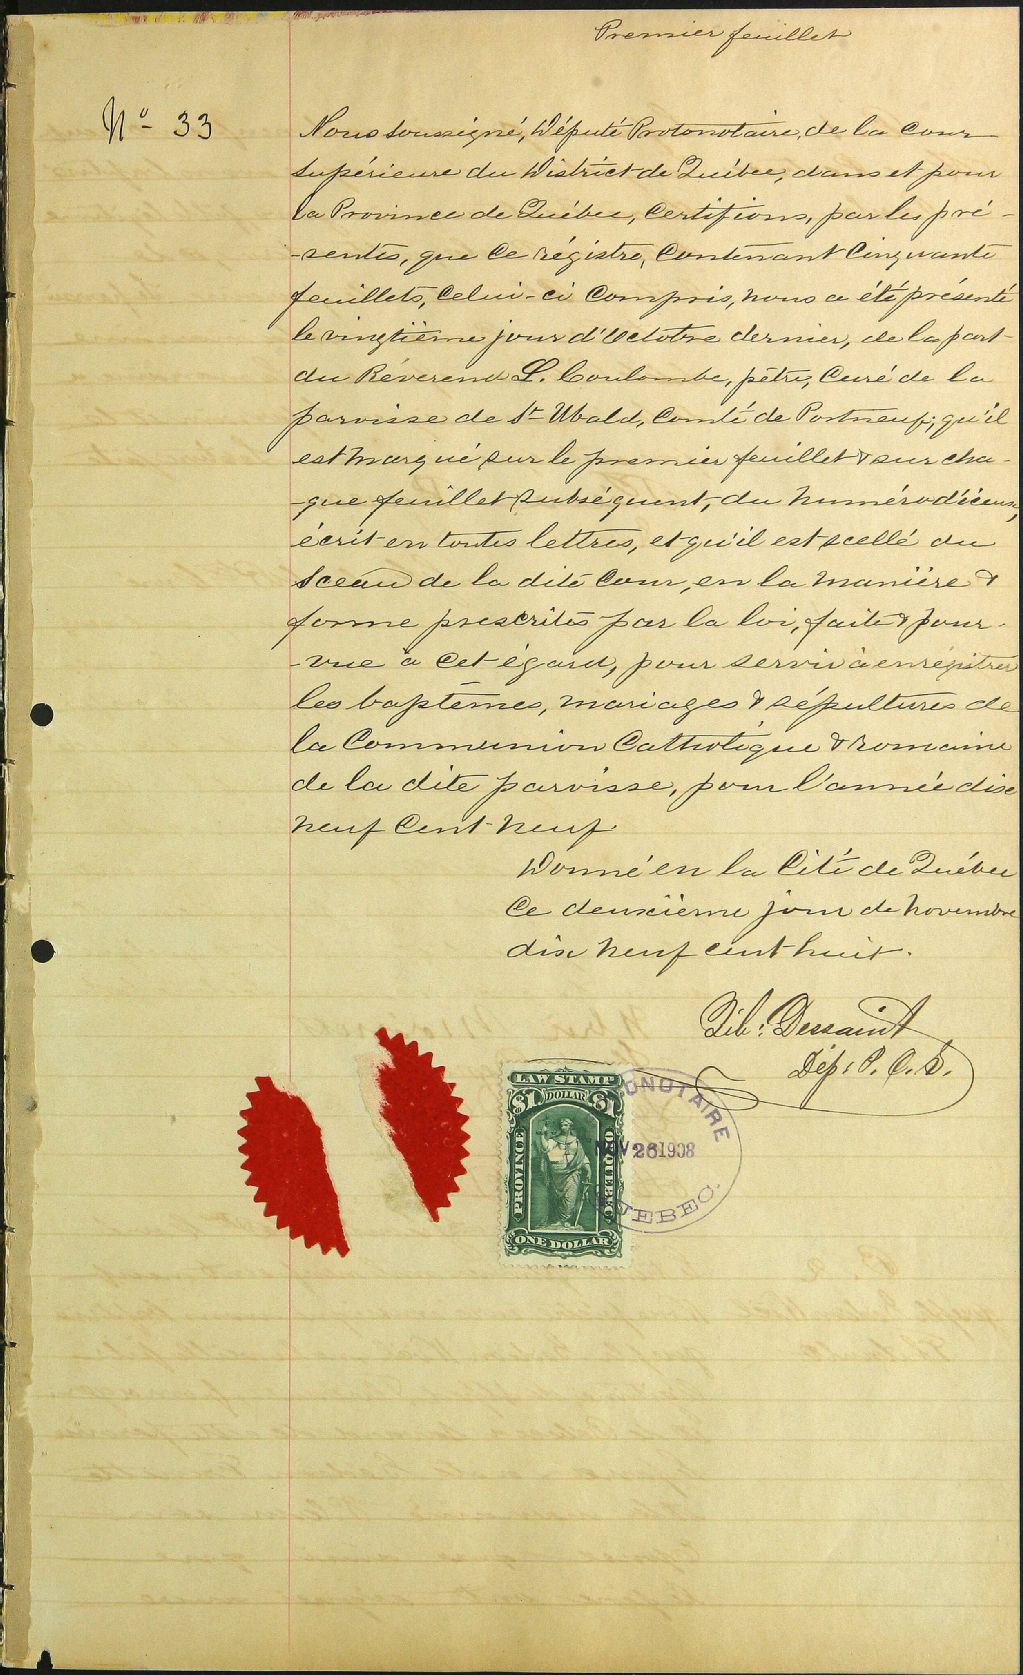 Premier feuillet
No 33
Nous soussigné, Député Protonotaire, de la Cour
Supérieure du District de Québec, dans et pour
la Province de Québec, Certifions, par les pré-
-sentes, que ce régistre, contenant Cinquante
feuillets, celui-ci compris, nous a été présenté
le vingtième jour d'Octobre dernier, de la part
du Révérend L. Coulombe, ptre, Curé de la
paroisse de St Ubald, Comté de Portneuf; qu'il
est marqué sur le premier feuillet & sur cha-
-que feuillet subséquent, du numéro d'iceux,
écrit en toutes lettres, et qu'il est scellé du
Sceau de la dite Cour, en la manière &
forme prescrites par la loi, faite & pour-
-vue à cet égard, pour servir à enrégistrer
les baptêmes, mariages & sépultures de
la Communion Catholique & romaine
de la dite paroisse, pour l'année dix
neuf cent neuf
Donné en la Cité de Québec
Ce deuxième jour de novembre
dix neuf cent huit.
Dessaint
Dép: P. C. S.
LAW STAMP
$1 DOLLAR $1
PROVINCE
OF QUEBEC
ONE DOLLAR
ONOTAIRE
NOV 26 1908
QUEBEC.